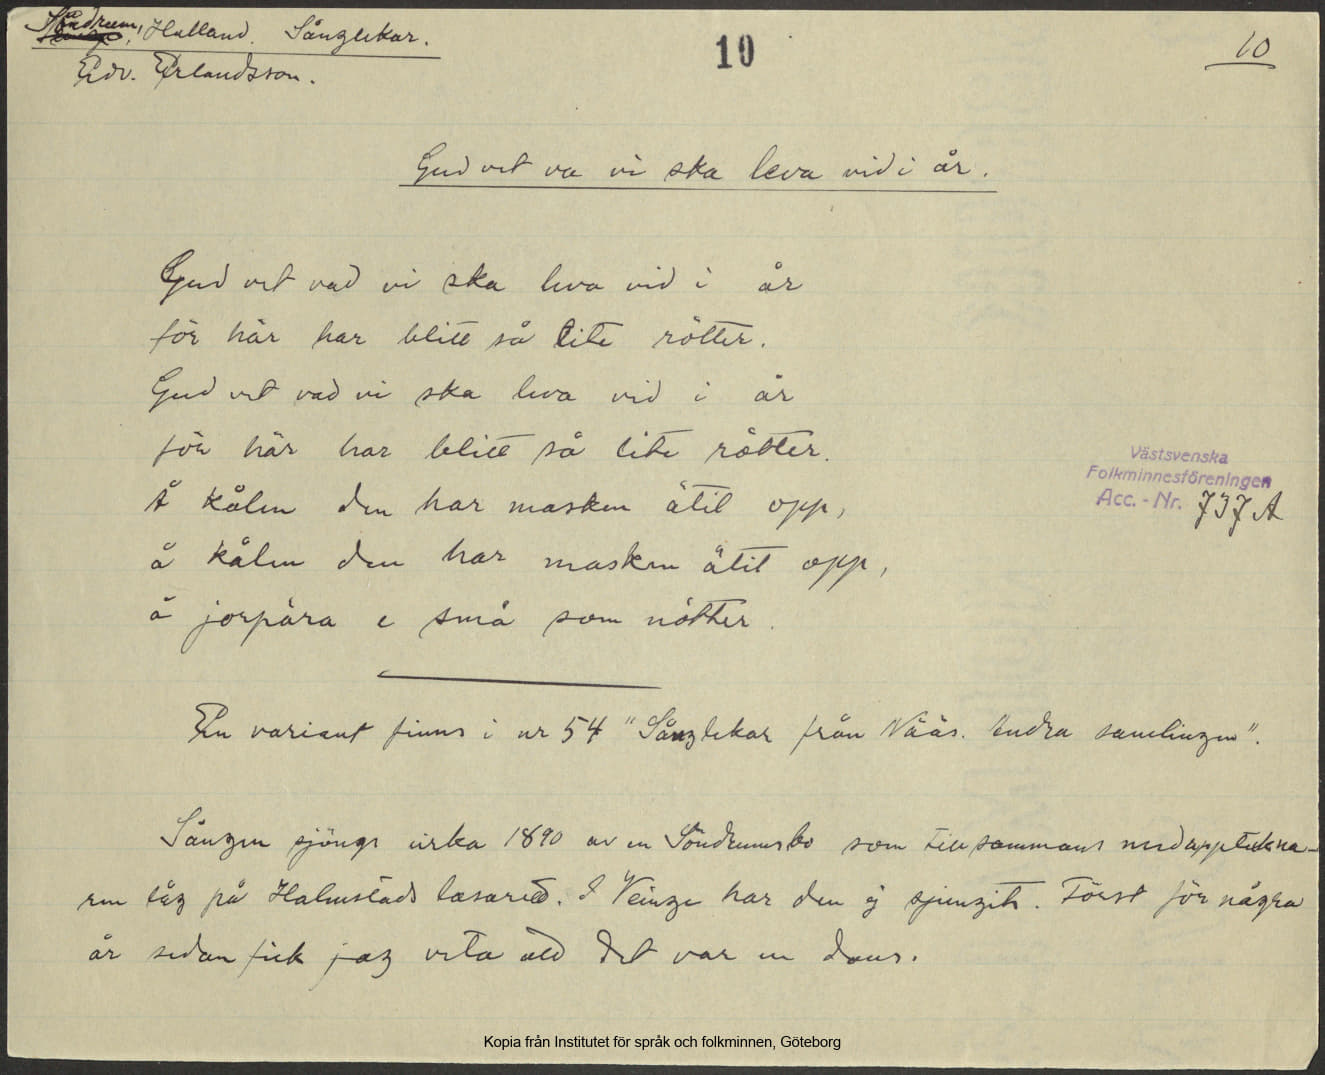 Söndrum, Halland. Sånglekar.
Edv. Erlandsson.
10
10
Gud vet va vi ska leva vid i år.
Gud vet vad vi ska leva vid i år
för här har blitt så lite rötter.
Gud vet vad vi ska leva vid i år
för här har blitt så lite rötter.
Å kålen den har masken ätit opp,
å kålen den har masken ätit opp,
å jorpära e små som nötter.
Västsvenska
Folkminnesföreningen
Acc. - Nr. 737 A
En variant finns i nr 54 "Sånglekar från Nääs. Andra samlingen".
Sången sjöngs cirka 1890 av en Söndrumsbo som tillsammans med appteckna-
ren låg på Halmstads lasarett. I Veinge har den ej sjungits. Först för några
år sedan fick jag veta att det var en dans.
Kopia från Institutet för språk och folkminnen, Göteborg